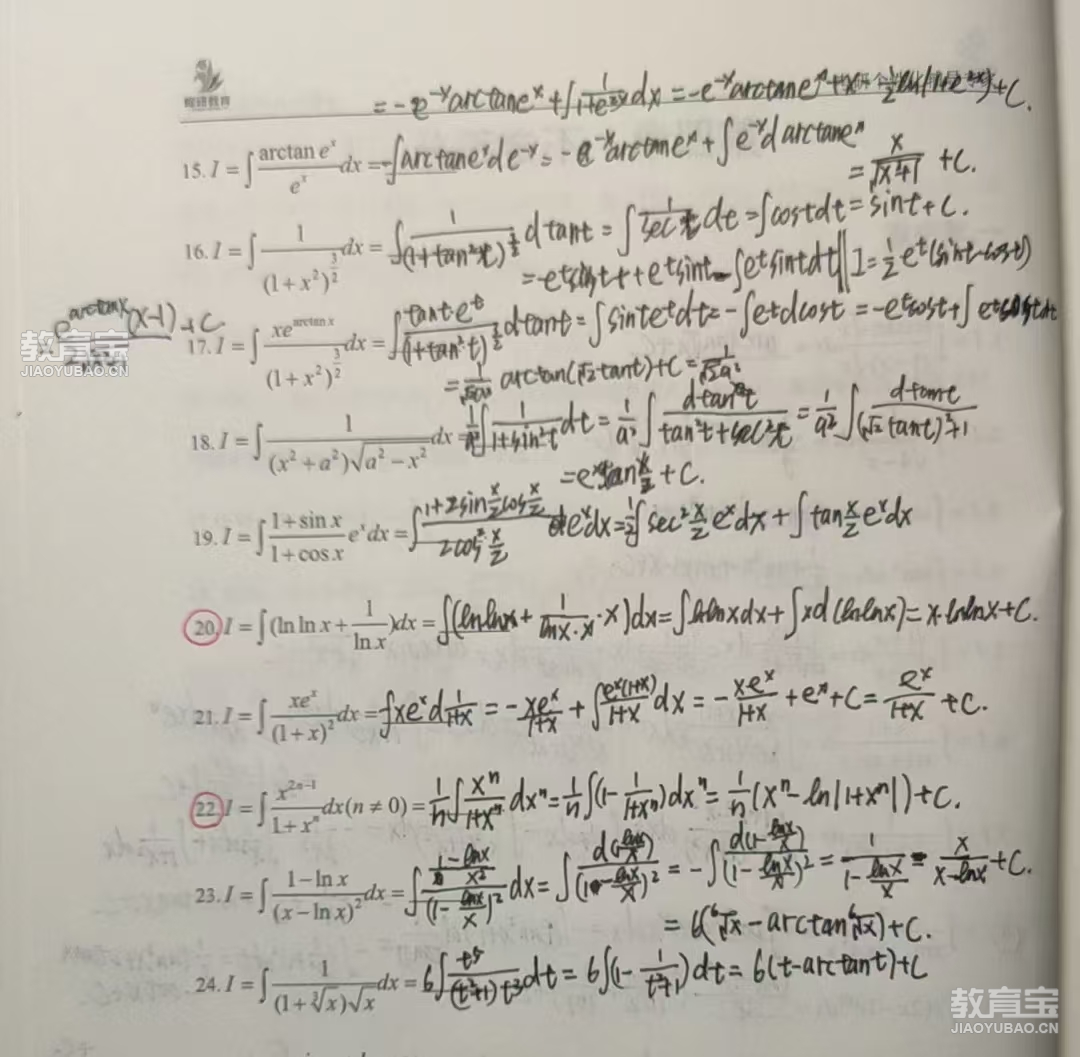 硕研教育
= -e^{-x} arctan e^x + ∫ 1/(1+e^{2x}) dx = -e^{-x} arctan e^x + x - 1/2 ln(1+e^{2x}) + C.
15. I = ∫ (arctan e^x)/(e^x) dx = -∫ arctan e^x d e^{-x} = -e^{-x} arctan e^x + ∫ e^{-x} d arctan e^x
= x/√(x²+1) + C.
16. I = ∫ 1/(1+x²)^{3/2} dx = ∫ 1/(1+tan²t)^{3/2} d tant = ∫ 1/sec t dt = ∫ cost dt = sint + C.
= -e^t cost + e^t sint - ∫ e^t sint dt ‖ I = 1/2 e^t (sint - cost)
e^{arctanx}(x-1) + C
17. I = ∫ (x e^{arctan x})/(1+x²)^{3/2} dx = ∫ (tant e^t)/(1+tan²t)^{3/2} d tant = ∫ sint e^t dt = -∫ e^t d cost = -e^t cost + ∫ e^t cost dt
arctan(√2 tant) + C =
18. I = ∫ 1/((x²+a²)√(a²-x²)) dx = 1/a² ∫ 1/(1+sin²t) dt = 1/a² ∫ (d tan t)/(tan²t + sec²t) = 1/a² ∫ (d tant)/((√2 tant)²+1)
= e^x tan x/2 + C.
19. I = ∫ (1+sin x)/(1+cos x) e^x dx = ∫ (1+2sin x/2 cos x/2)/(2cos² x/2) e^x dx = 1/2 ∫ sec² x/2 e^x dx + ∫ tan x/2 e^x dx
20. I = ∫ (ln ln x + 1/ln x) dx = ∫ (lnlnx + 1/(lnx·x) · x) dx = ∫ lnlnx dx + ∫ x d(lnlnx) = x·lnlnx + C.
21. I = ∫ (x e^x)/(1+x)² dx = -∫ x e^x d 1/(1+x) = -(x e^x)/(1+x) + ∫ (e^x(1+x))/(1+x) dx = -(x e^x)/(1+x) + e^x + C = e^x/(1+x) + C.
22. I = ∫ x^{2n-1}/(1+x^n) dx (n ≠ 0) = 1/n ∫ x^n/(1+x^n) dx^n = 1/n ∫ (1 - 1/(1+x^n)) dx^n = 1/n (x^n - ln|1+x^n|) + C.
23. I = ∫ (1-ln x)/(x-ln x)² dx = ∫ ((1-lnx)/x²)/(1-lnx/x)² dx = ∫ d(lnx/x)/(1-lnx/x)² = -∫ d(1-lnx/x)/(1-lnx/x)² = 1/(1-lnx/x) = x/(x-lnx) + C.
= 6(⁶√x - arctan ⁶√x) + C.
24. I = ∫ 1/((1+∛x)√x) dx = 6∫ t⁵/((t²+1)t³) dt = 6∫ (1 - 1/(t²+1)) dt = 6(t - arctan t) + C
教育宝
JIAOYUBAO.CN
教育宝
JIAOYUBAO.CN